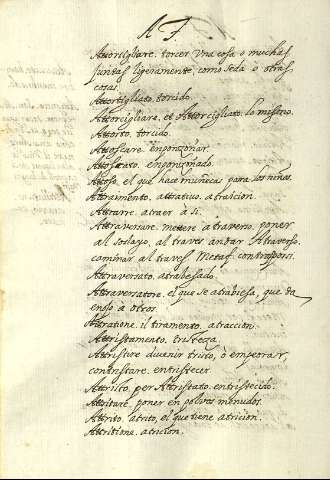 A T.
Attorcigliare. torcer una cosa o muchas
juntas ligeramente como seda o otras
cosas
Attortigliato. torcido.
Attorcigliare, et Attorcigliato. lo mismo.
Attorto. torcido.
Attoscare. enponzonar.
Attoscato. enponzonado.
Attoso. el que hace muñecas para los niños.
Attraimento. attrativo. atraicion.
Attrarre. atraer a si.
Attraversare. mettere a traverso. poner
al soslayo, al traves andar Atraverso.
caminar al traves Metaf. contraporsi.
Attraversato. atrabesado.
Attraversatore. el que se atrabiesa, que da
enojo a otros.
Attratione. il tiramento. atraccion.
Attristamento. tristeza.
Attristire divenir tristo, o empeorar,
contristare. entristecer.
Attristito, per Attristato. entristecido.
Attritare. poner en polvos menudos.
Attrito. atrito, el que tiene atricion.
Attritione. atricion.